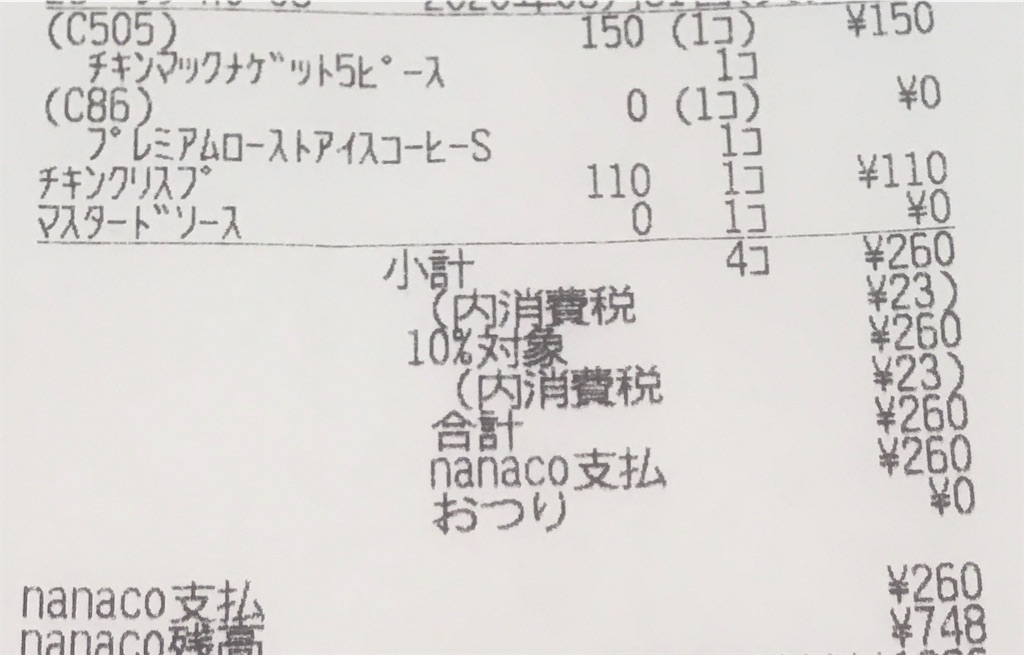 (C505) 150 (1コ) ¥150
チキンマックナゲット5ピース 1コ
(C86) 0 (1コ) ¥0
プレミアムローストアイスコーヒーS 1コ
チキンクリスプ 110 1コ ¥110
マスタードソース 0 1コ ¥0
小計 4コ ¥260
(内消費税 ¥23)
10%対象 ¥260
(内消費税 ¥23)
合計 ¥260
nanaco支払 ¥260
おつり ¥0
nanaco支払 ¥260
nanaco残高 ¥748